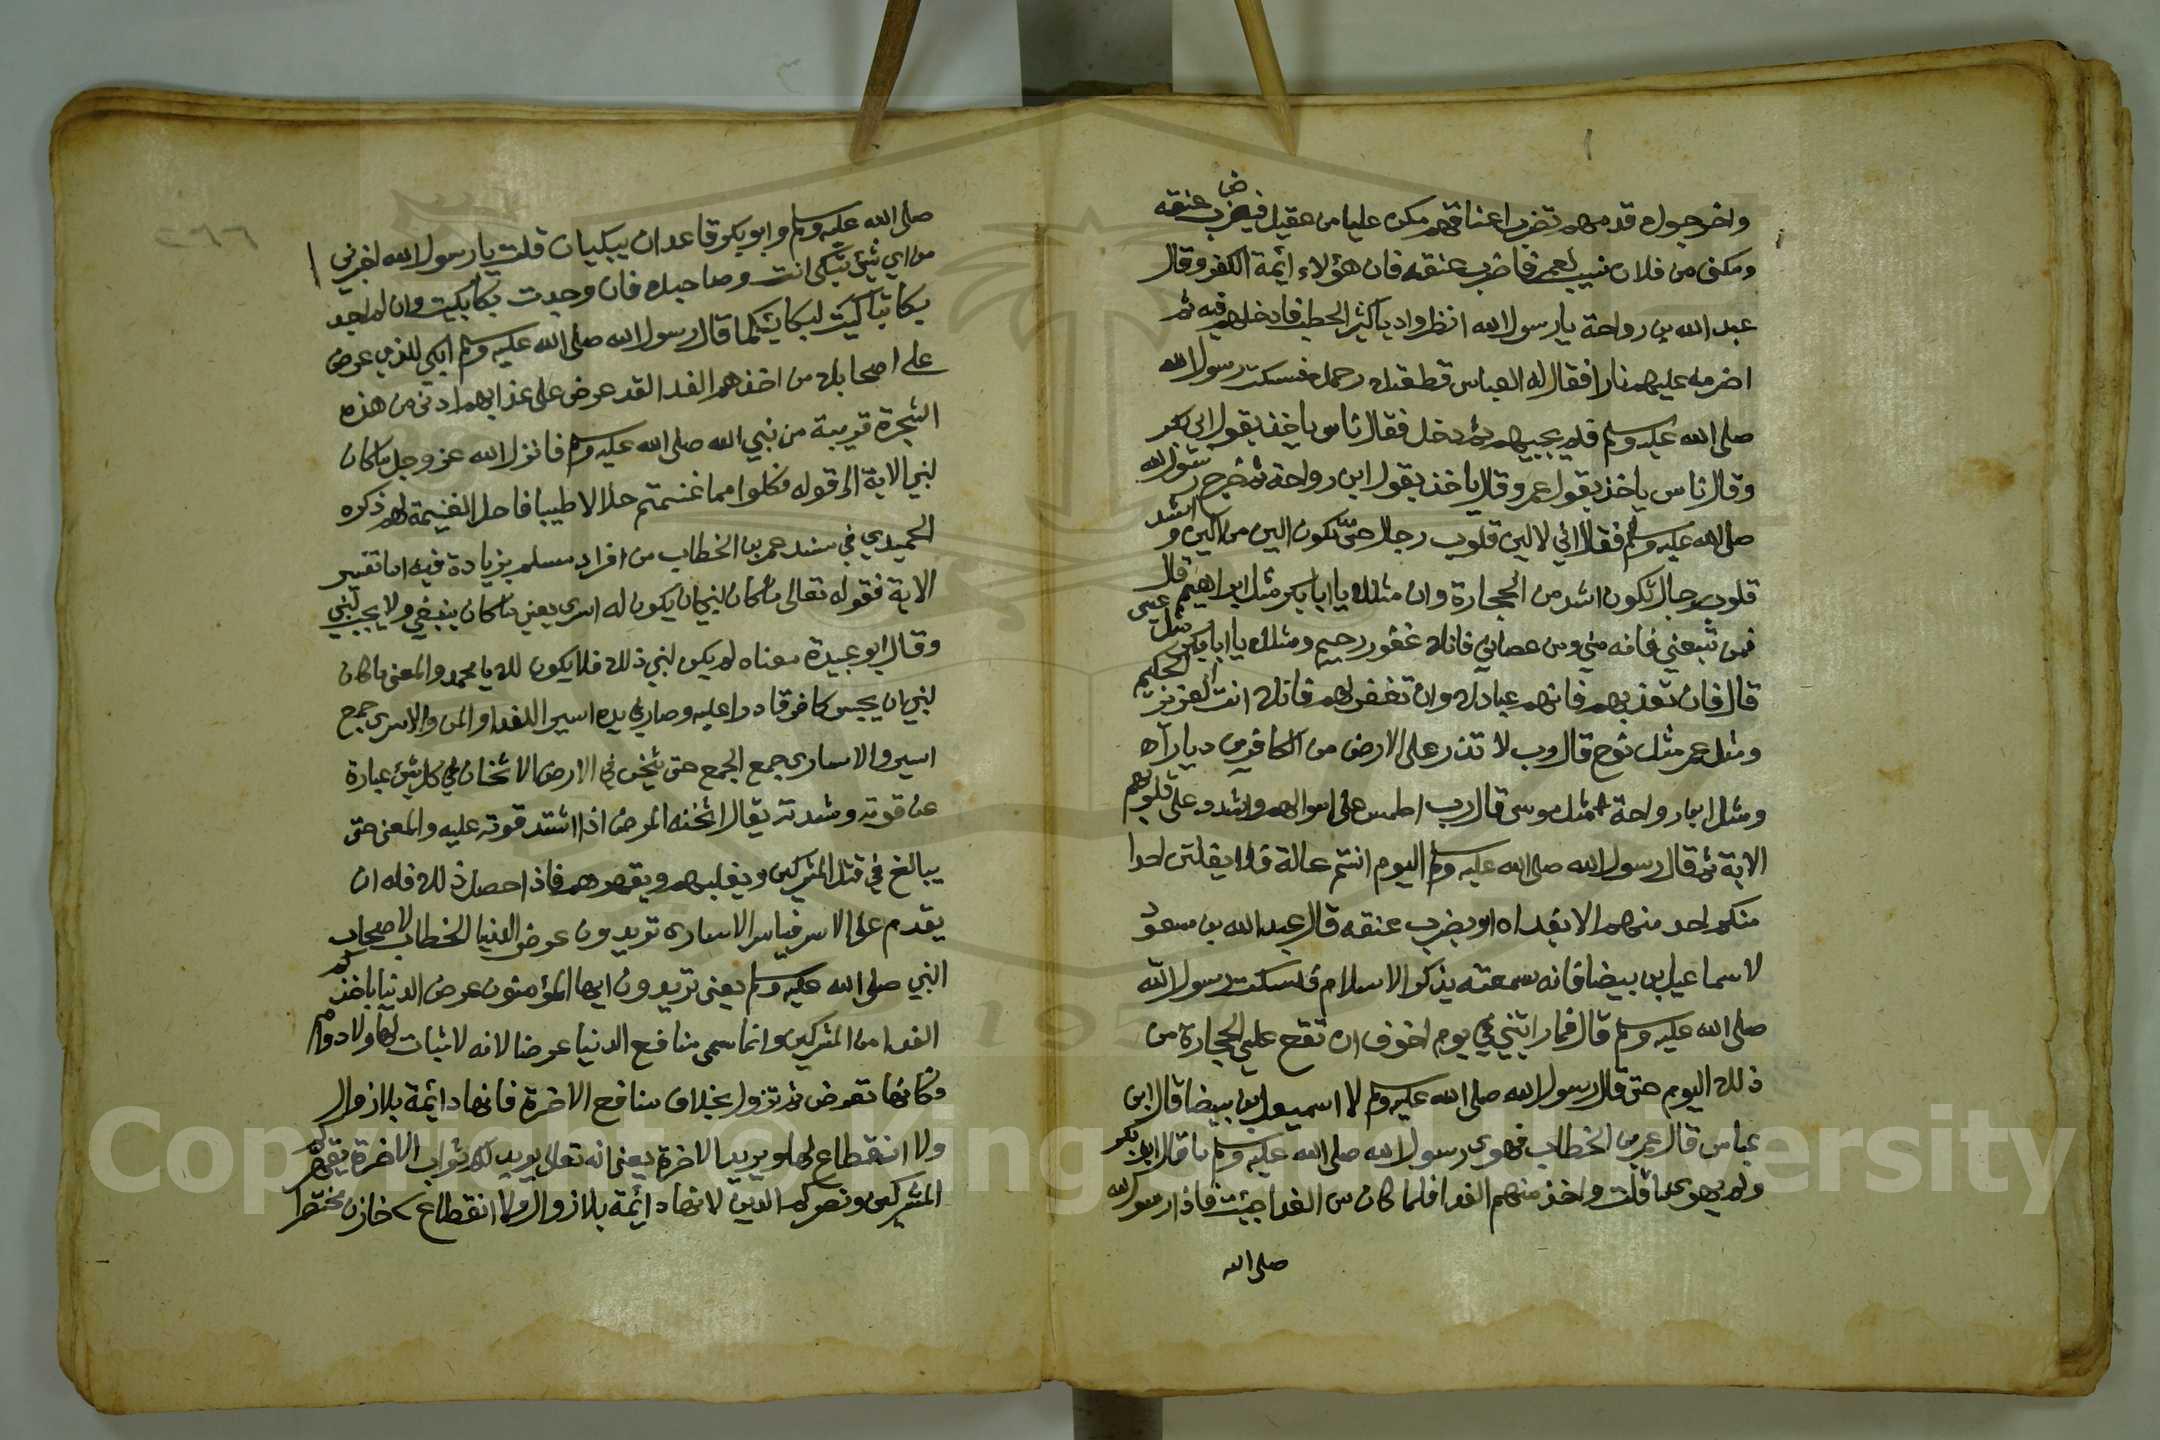 واخرجوك قدمهم تضرب اعناقهم مكن عليا من عقيل فيضرب عنقه
ومكنى من فلان نسيب لعمر فاضرب عنقه فان هؤلاء ائمة الكفر وقال
عبد الله بن رواحة يارسول الله انظر واديا كثير الحطب فادخلهم فيه ثم
اضرمه عليهم نارا فقال له العباس قطعتك رحمك فسكت رسول الله
صلى الله عليه وسلم فلم يجيبهم ثم دخل فقال ناس ياخذ بقول ابي بكر
وقال ناس ياخذ بقول عمر وقال ياخذ بقول ابن رواحة ثم خرج رسول الله
صلى الله عليه وسلم فقال اني لالين قلوب رجال حتى تكون الين من الين واشد
قلوب رجال تكون اشد من الحجارة وان مثلك يا ابا بكر مثل ابراهيم قال
فمن تبعني فانه مني ومن عصاني فانك غفور رحيم ومثلك يا ابا بكر مثل عيسى
قال فان تعذبهم فانهم عبادك وان تغفر لهم فانك انت العزيز الحكيم
ومثل عمر مثل نوح قال رب لا تذر على الارض من الكافرين ديارا
ومثل ابن رواحة كمثل موسى قال رب اطمس على اموالهم واشدد على قلوبهم
الاية ثم قال رسول الله صلى الله عليه وسلم اليوم انتم عالة فلا يفلتن احدا
منكم احد منهم الا بفداه او بضرب عنقه قال عبد الله بن مسعود
لاسماعيل بن بيضا فانه سمعته يذكر الاسلام فسكت رسول الله
صلى الله عليه وسلم قال فما رايتني في يوم اخوف ان تقع علي الحجارة من
ذلك اليوم حتى قال رسول الله صلى الله عليه وسلم لا اسميعيل بن بيضا قال ابن
عباس قال عمر بن الخطاب فهوى رسول الله صلى الله عليه وسلم ما قال ابو بكر
ولم يهوى ما قلت واخذ منهم الفدا فلما كان من الغدا جيئت فاذا رسول الله
صلى الله
صلى الله عليه وسلم وابو بكر قاعدان يبكيان قلت يارسول الله اخبرني
من اي شيئ تبكي انت وصاحبك فان وجدت بكا بكيت وان لم اجد
بكا تباكيت لبكائكما قال رسول الله صلى الله عليه وسلم ابكي للذي عرض
على اصحابك من اخذهم الفدا لقد عرض على عذابهم ادنى من هذه
الشجرة قريبة من نبي الله صلى الله عليه وسلم فانزل الله عز وجل ما كان
لنبي الاية الى قوله فكلوا مما غنمتم حلالا طيبا فاحل الغنيمة لهم ذكره
الحميدي في مسند عمر بن الخطاب من افراد مسلم بزيادة فيه اما تفسير
الاية فقوله تعالى ما كان لنبي ان يكون له اسرى يعني ما كان ينبغي ولا يجب لنبي
وقال ابو عبيدة معناه لم يكن لنبي ذلك فلا يكون لك يا محمد والمعنى ما كان
لنبي ان يحبس كافر قادرا عليه وصار في يده اسير اللفدا والمن والاسرى جمع
اسير والاسارى جمع الجمع حتى يثخن في الارض الاثخان في كل شئ عبارة
عن قوته وشدته يقال اثخنه المرض اذا اشتد قوته عليه والمعنى حتى
يبالغ في قتل المشركين ويغلبهم ويقهرهم فاذا حصل ذلك فله ان
يقدم على الاسر فياسر الاسارى تريدون عرض الدنيا الخطاب لاصحاب
النبي صلى الله عليه وسلم يعنى تريدون ايها المؤمنون عرض الدنيا باخذكم
الفدا من المشركين وانما سمى منافع الدنيا عرضا لانه لا ثبات لها ولا دوام
فكانها تعرض ثم تزول بخلاف منافع الاخرة فانها دائمة بلا زوال
ولا انقطاع لها ويريد الاخرة يعنى انه تعالى يريد لكم ثواب الاخرة بقهركم
المشركين ونصركم الدين لانها دائمة بلا زوال ولا انقطاع خازن مختصرا
٢٦٦
Copyright © King Saud University
1957